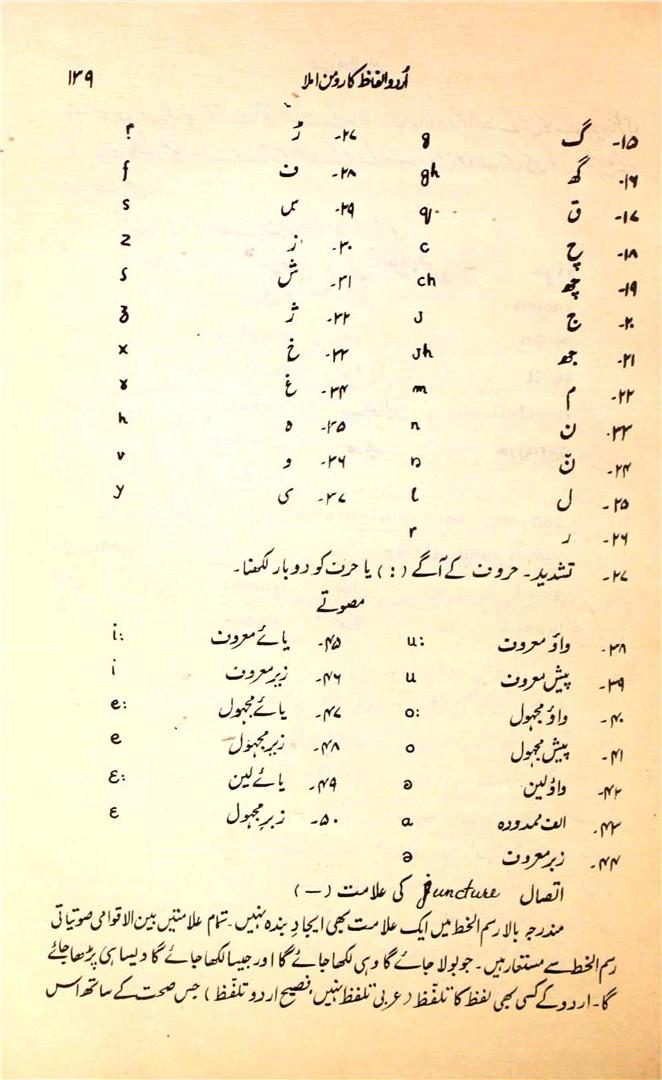 اُردو الفاظ کا رومن املا ۱۳۹
۱۵- گ g ۲۷- ڑ ɽ
۱۶- گھ gh ۲۸- ف f
۱۷- ق q ۲۹- س s
۱۸- چ c ۳۰- ز z
۱۹- چھ ch ۳۱- ش ʃ
۲۰- ج J ۳۲- ژ ʒ
۲۱- جھ Jh ۳۳- خ x
۲۲- م m ۳۴- غ ɣ
۲۳- ن n ۳۵- ہ h
۲۴- نّ ɲ ۳۶- و v
۲۵- ل l ۳۷- ی y
۲۶- ر r
۲۷- تشدید۔ حروف کے آگے (:) یا حرف کو دو بار لکھنا۔
مصوتے
۳۸- واؤ معروف u: ۴۵- یائے معروف i:
۳۹- پیش معروف u ۴۶- زیر معروف i
۴۰- واؤ مجہول o: ۴۷- یائے مجہول e:
۴۱- پیش مجہول o ۴۸- زیر مجہول e
۴۲- واؤ لین ɔ ۴۹- یائے لین ɛ:
۴۳- الف ممدودہ a ۵۰- زبرِ مجہول ɛ
۴۴- زبر معروف ə
اتصال Juncture کی علامت (—)
مندرجہ بالا رسم الخط میں ایک علامت بھی ایجادِ بندہ نہیں۔ تمام علامتیں بین الاقوامی صوتیاتی
رسم الخط سے مستعار ہیں۔ جو بولا جائے گا وہی لکھا جائے گا اور جیسا لکھا جائے گا ویسا ہی پڑھا جائے
گا۔ اردو کے کسی بھی لفظ کا تلفّظ (عربی تلفظ نہیں، فصیح اردو تلفّظ) جس صحت کے ساتھ اس